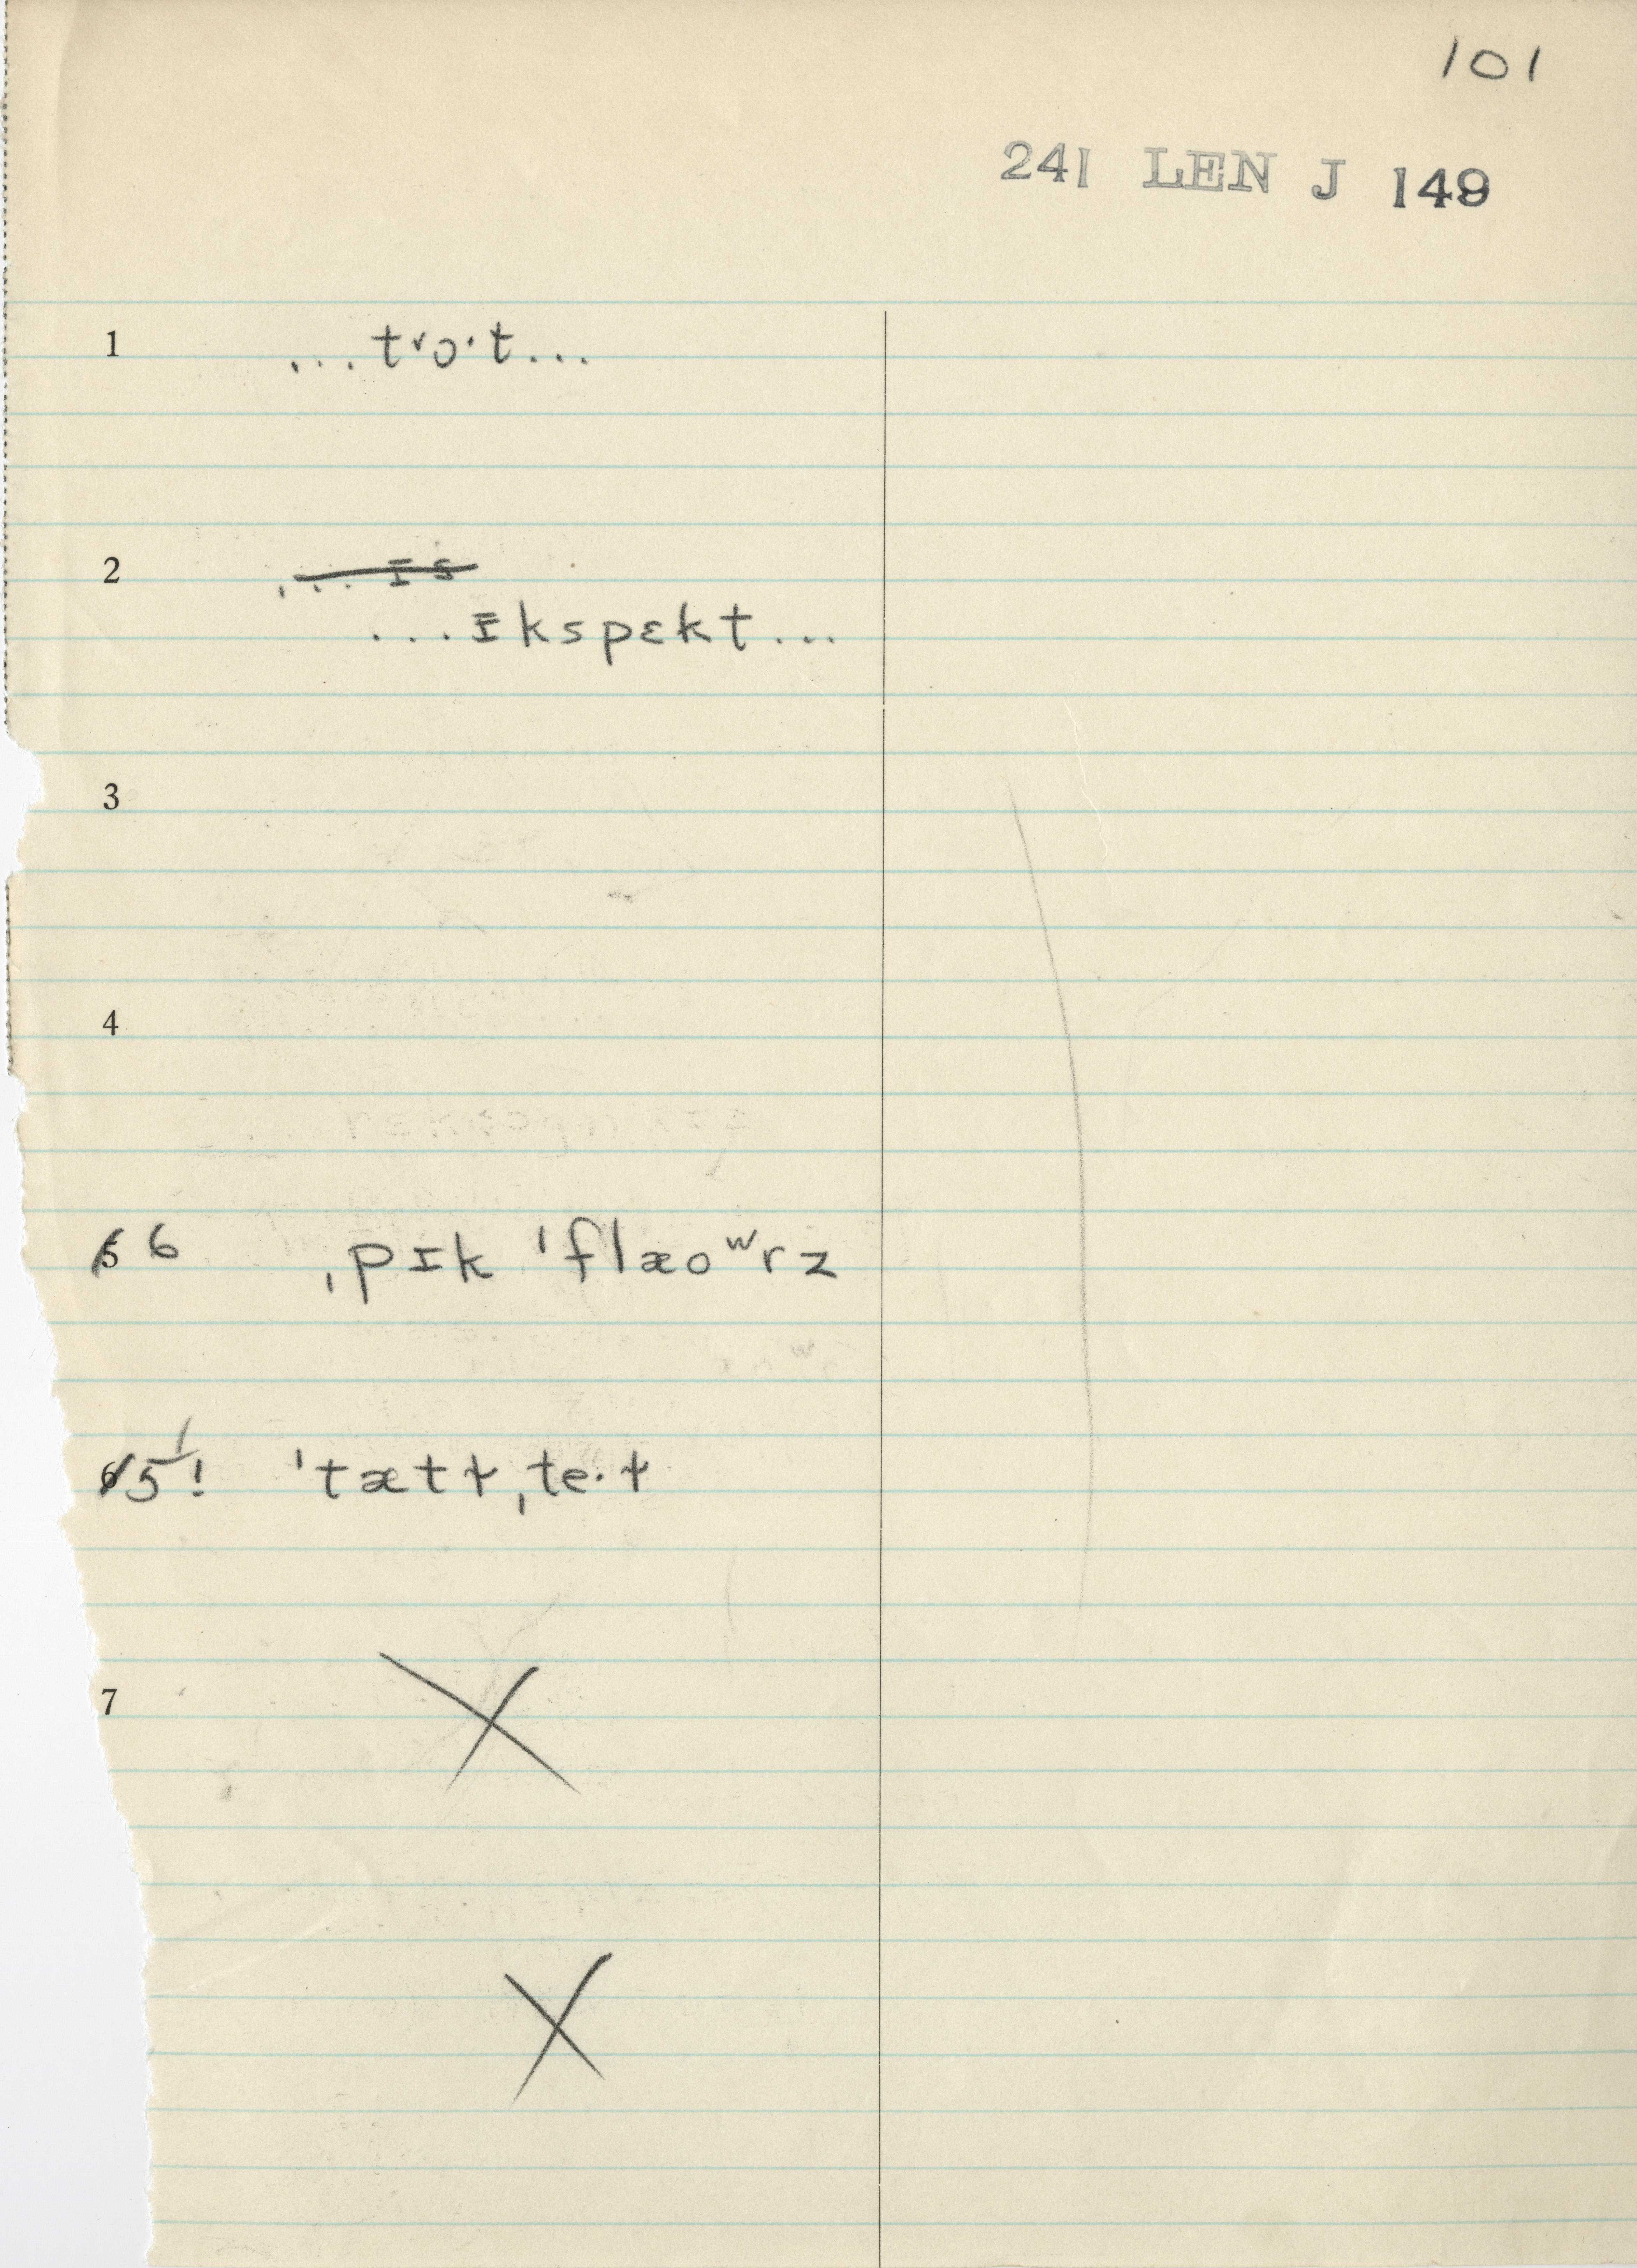 101
241 LEN J 149
1 ...trɔ·t...
2 ... ɪs
...ɪkspɛkt...
3
4
5 6 ˌpɪk ˈflæoʷrz
6 5! ˈtætɫˌte·ɫ
7